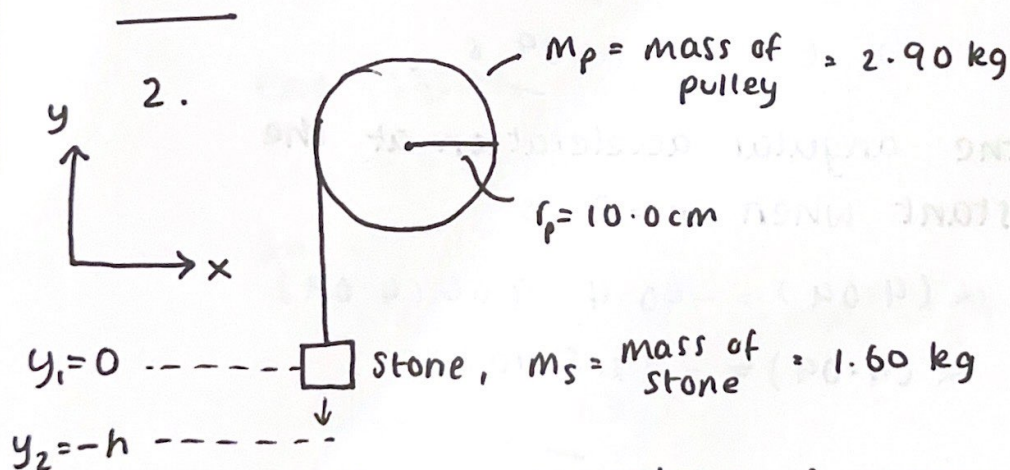 2.
y
x
Mp = mass of pulley = 2.90 kg
rp = 10.0 cm
y₁=0
stone, ms = mass of stone = 1.60 kg
y₂=-h